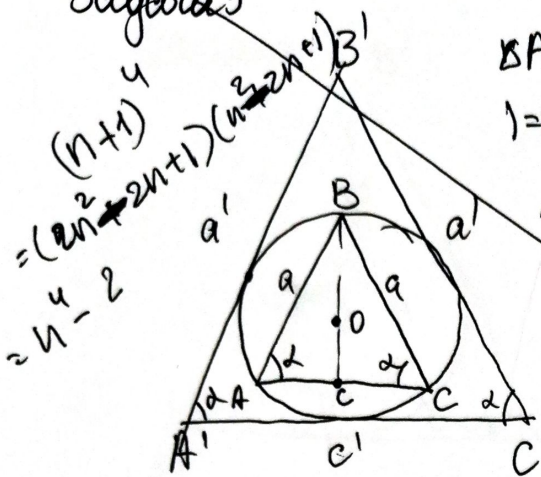 B'
(n+1)⁴
=(2n²+2n+1)(n²+2n+1)
=n⁴-2
ΔA
)=
a' a'
B
a a
O
α α
A c C
α α
A' c' C